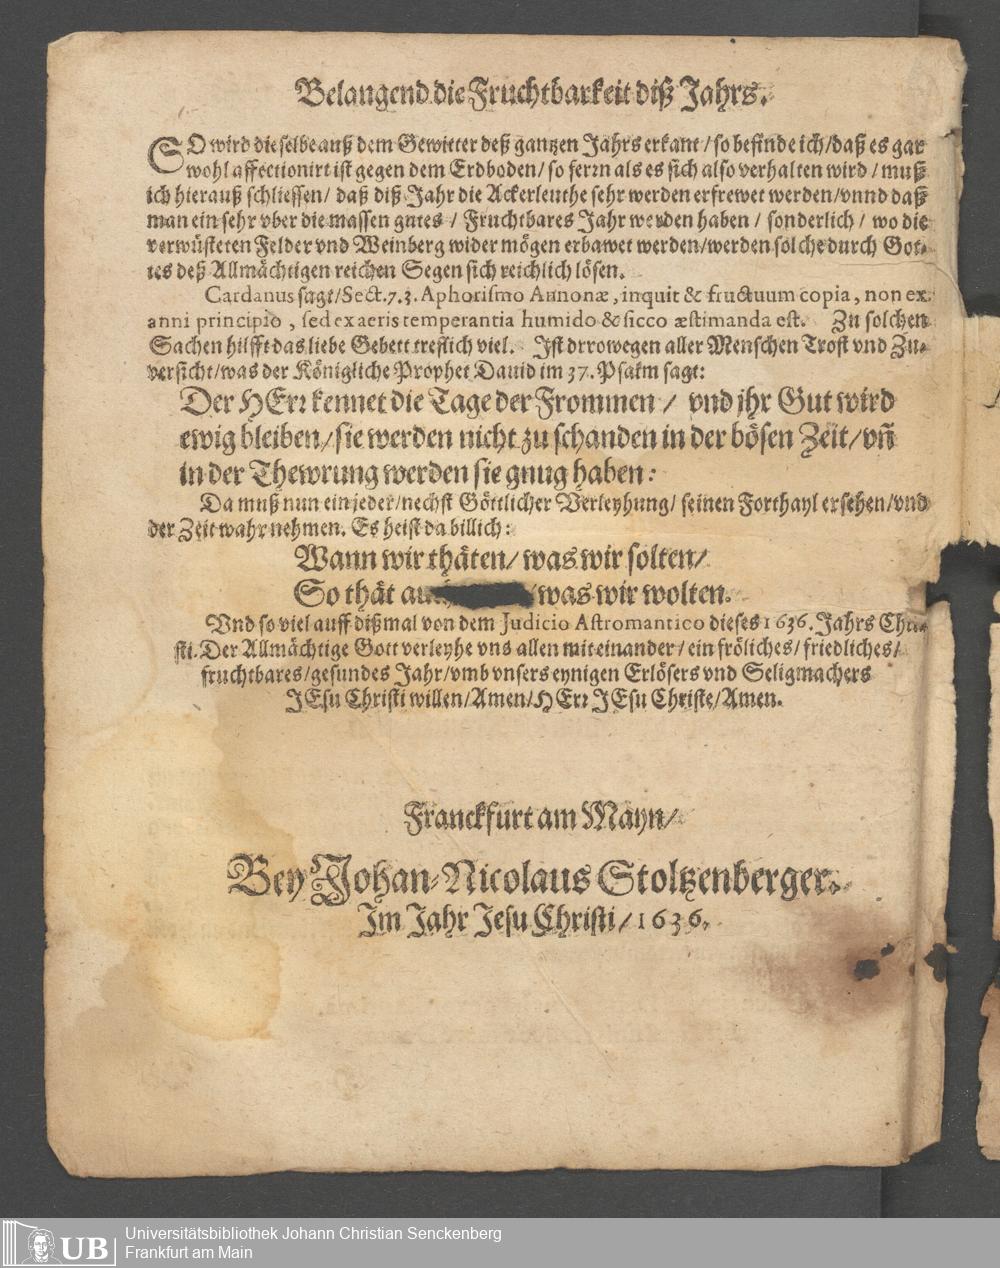 Belangend die Fruchtbarkeit diß Jahrs.
SO wird dieselbe auß dem Gewitter deß gantzen Jahrs erkant / so befinde ich / daß es gar
wohl affectionirt ist gegen dem Erdboden / so ferrn als es sich also verhalten wird / muß
ich hierauß schliessen / daß diß Jahr die Ackerleuthe sehr werden erfrewet werden / vnnd daß
man ein sehr vber die massen gutes / Fruchtbares Jahr werden haben / sonderlich / wo die
verwüsteten Felder vnd Weinberg wider mögen erbawet werden / werden solche durch Got-
tes deß Allmächtigen reichen Segen sich reichlich lösen.
Cardanus sagt / Sect. 7. 3. Aphorismo Annonæ, inquit & fructuum copia, non ex
anni principio, sed ex aeris temperantia humido & sicco æstimanda est. Zu solchen
Sachen hilfft das liebe Gebett treflich viel. Ist drrowegen aller Menschen Trost vnd Zu-
versicht / was der Königliche Prophet Dauid im 37. Psalm sagt:
Der HErr kennet die Tage der Frommen / vnd jhr Gut wird
ewig bleiben / sie werden nicht zu schanden in der bösen Zeit / vñ
in der Thewrung werden sie gnug haben:
Da muß nun ein jeder / nechst Göttlicher Verleyhung / seinen Forthayl ersehen / vnd
der Zeit wahr nehmen. Es heist da billich:
Wann wir thäten / was wir solten /
So thät / was wir wolten.
Vnd so viel auff dißmal von dem Judicio Astromantico dieses 1636. Jahrs Chri-
sti. Der Allmächtige Gott verleyhe vns allen mit einander / ein fröliches / friedliches /
fruchtbares / gesundes Jahr / vmb vnsers eynigen Erlösers vnd Seligmachers
JEsu Christi willen / Amen / HErr JEsu Christe / Amen.
Franckfurt am Mayn /
Bey Johan-Nicolaus Stoltzenberger.
Im Jahr Jesu Christi / 1636.
UB
Universitätsbibliothek Johann Christian Senckenberg
Frankfurt am Main